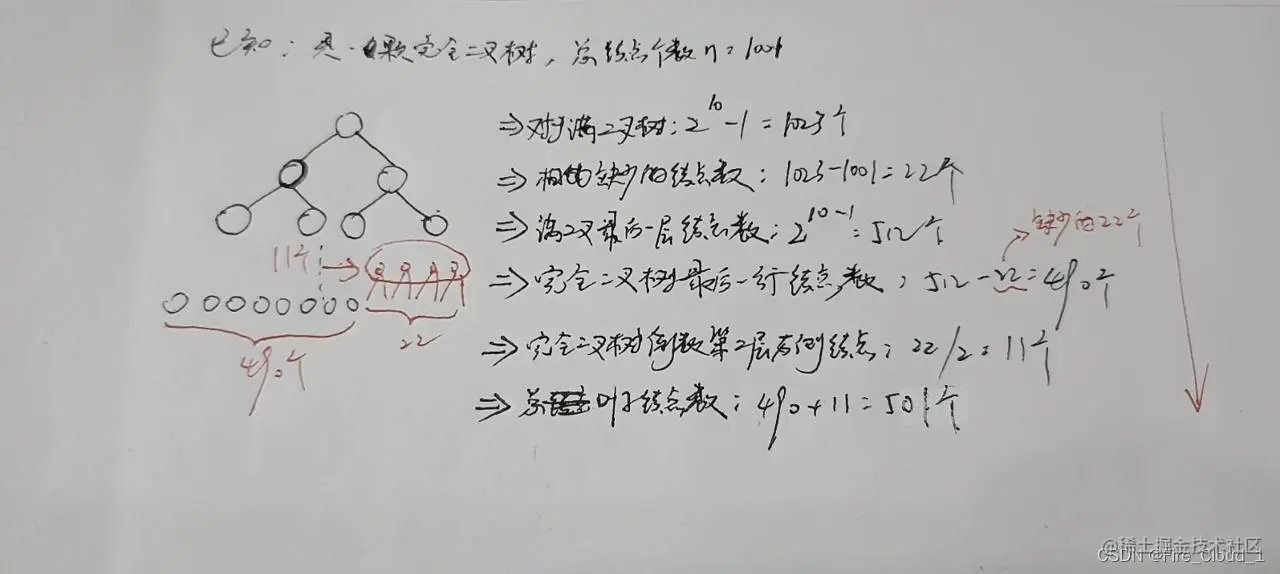 已知：是一颗完全二叉树，总结点个数n=1001
⇒对于满二叉树：2^10-1=1023个
⇒相比缺少的结点数：1023-1001=22个
⇒满二叉最后一层结点数：2^10-1=512个
缺少的22个
⇒完全二叉树最后一行结点数：512-22=490个
⇒完全二叉树倒数第2层右侧结点：22/2=11个
⇒总叶子结点数：490+11=501个
11个
22
490个
@稀土掘金技术社区
CSDN @Fire_Cloud_1